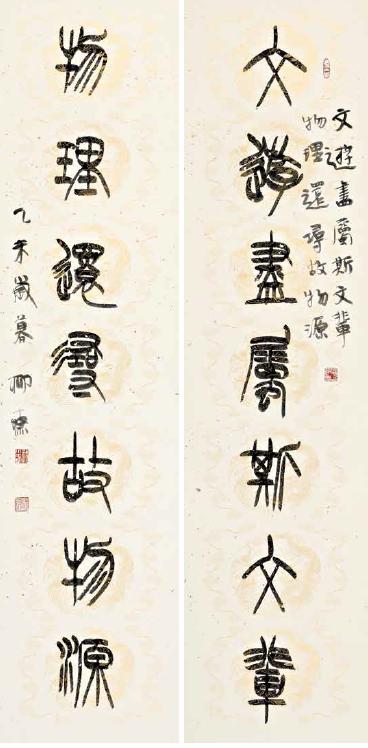 文遊盡屬斯文輩
文遊盡屬斯文輩
物理還尋故物源
物理還尋故物源
乙未歲暮